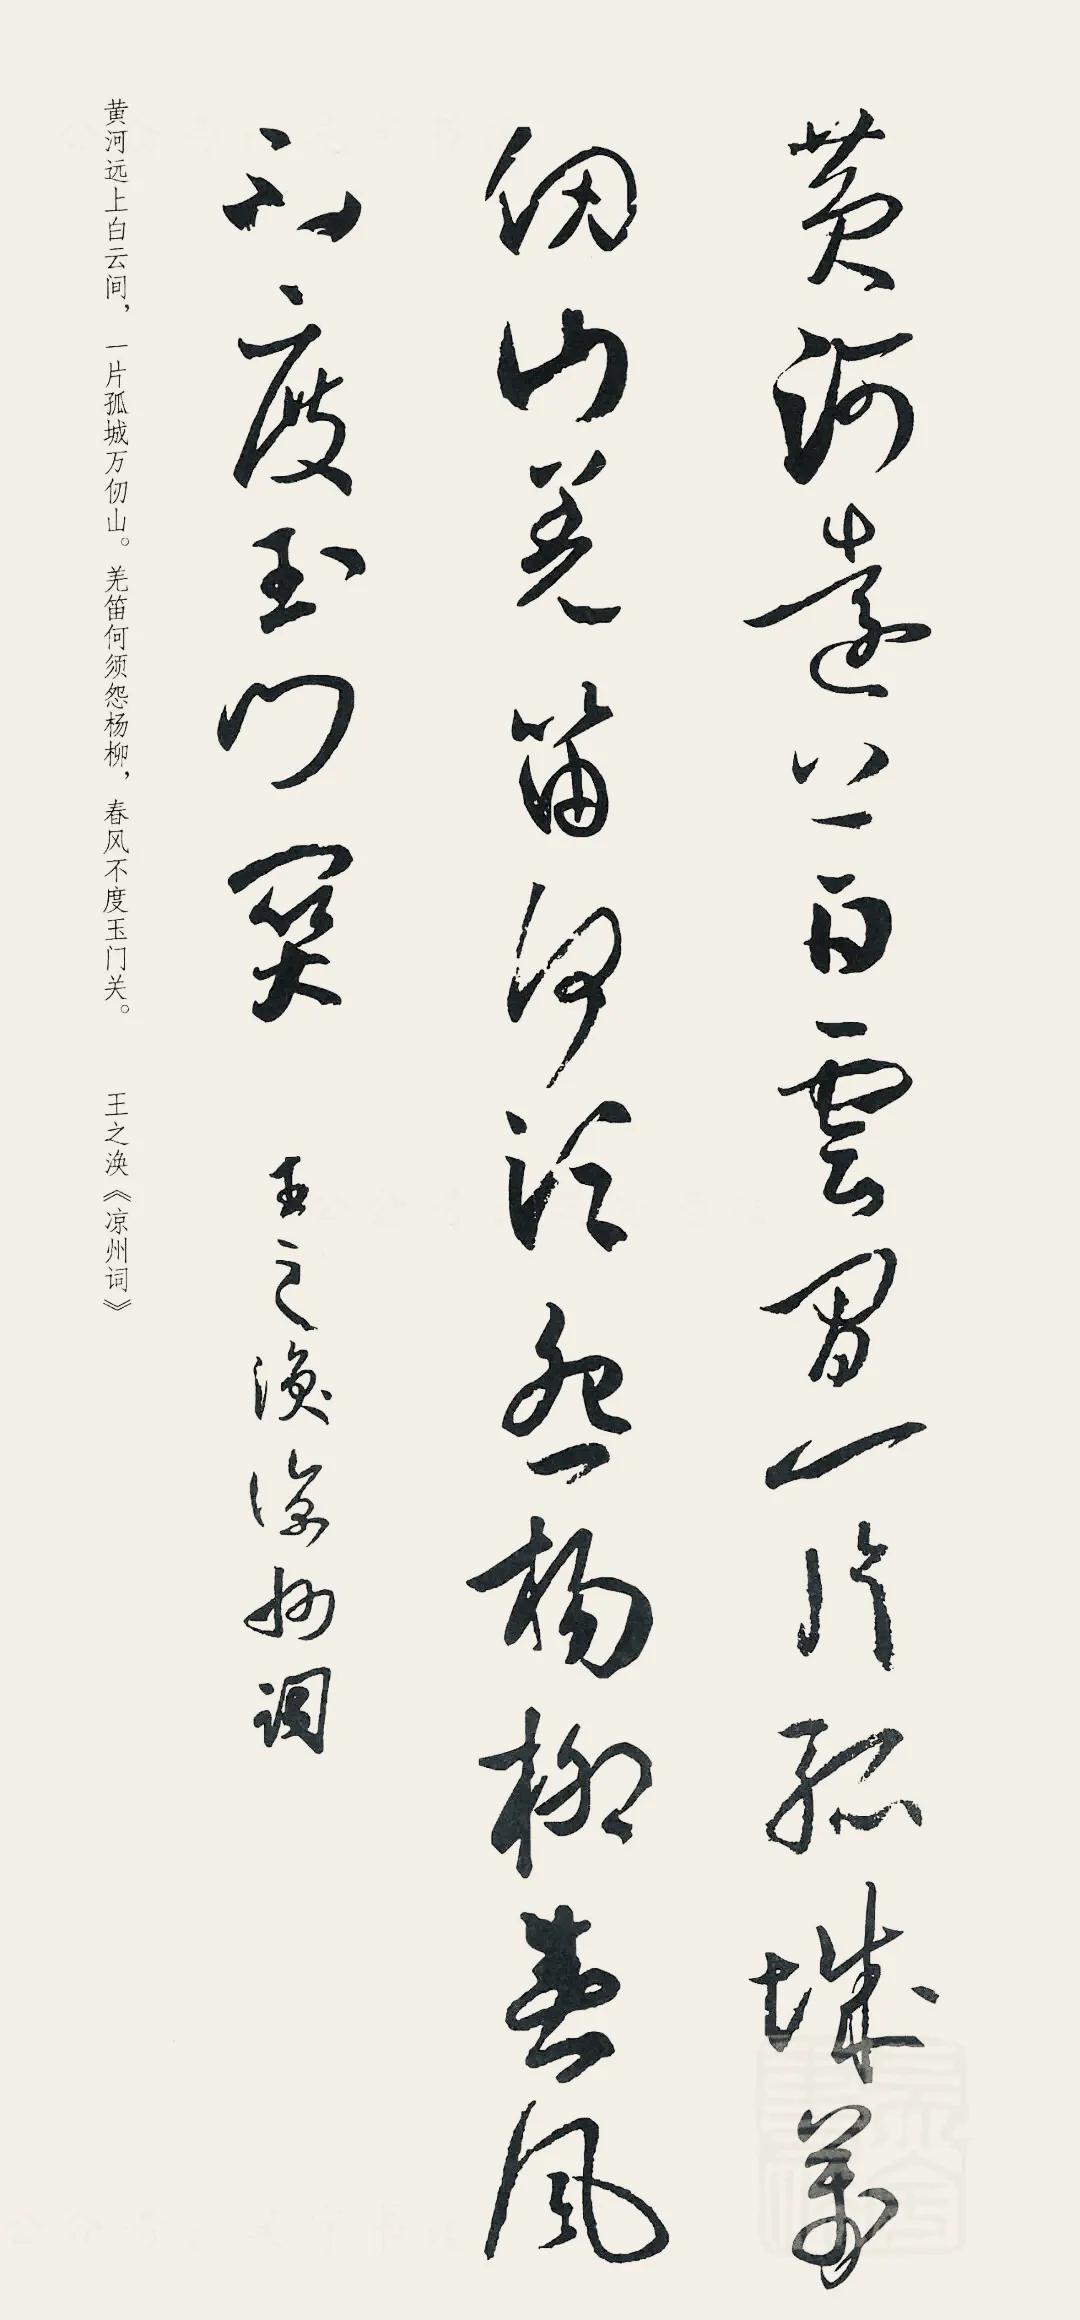 黄河遠上白雲間一片孤城萬
仞山羌笛何須怨楊柳春風
不度玉門関
王之渙涼州詞
黄河远上白云间，一片孤城万仞山。羌笛何须怨杨柳，春风不度玉门关。 王之涣《凉州词》